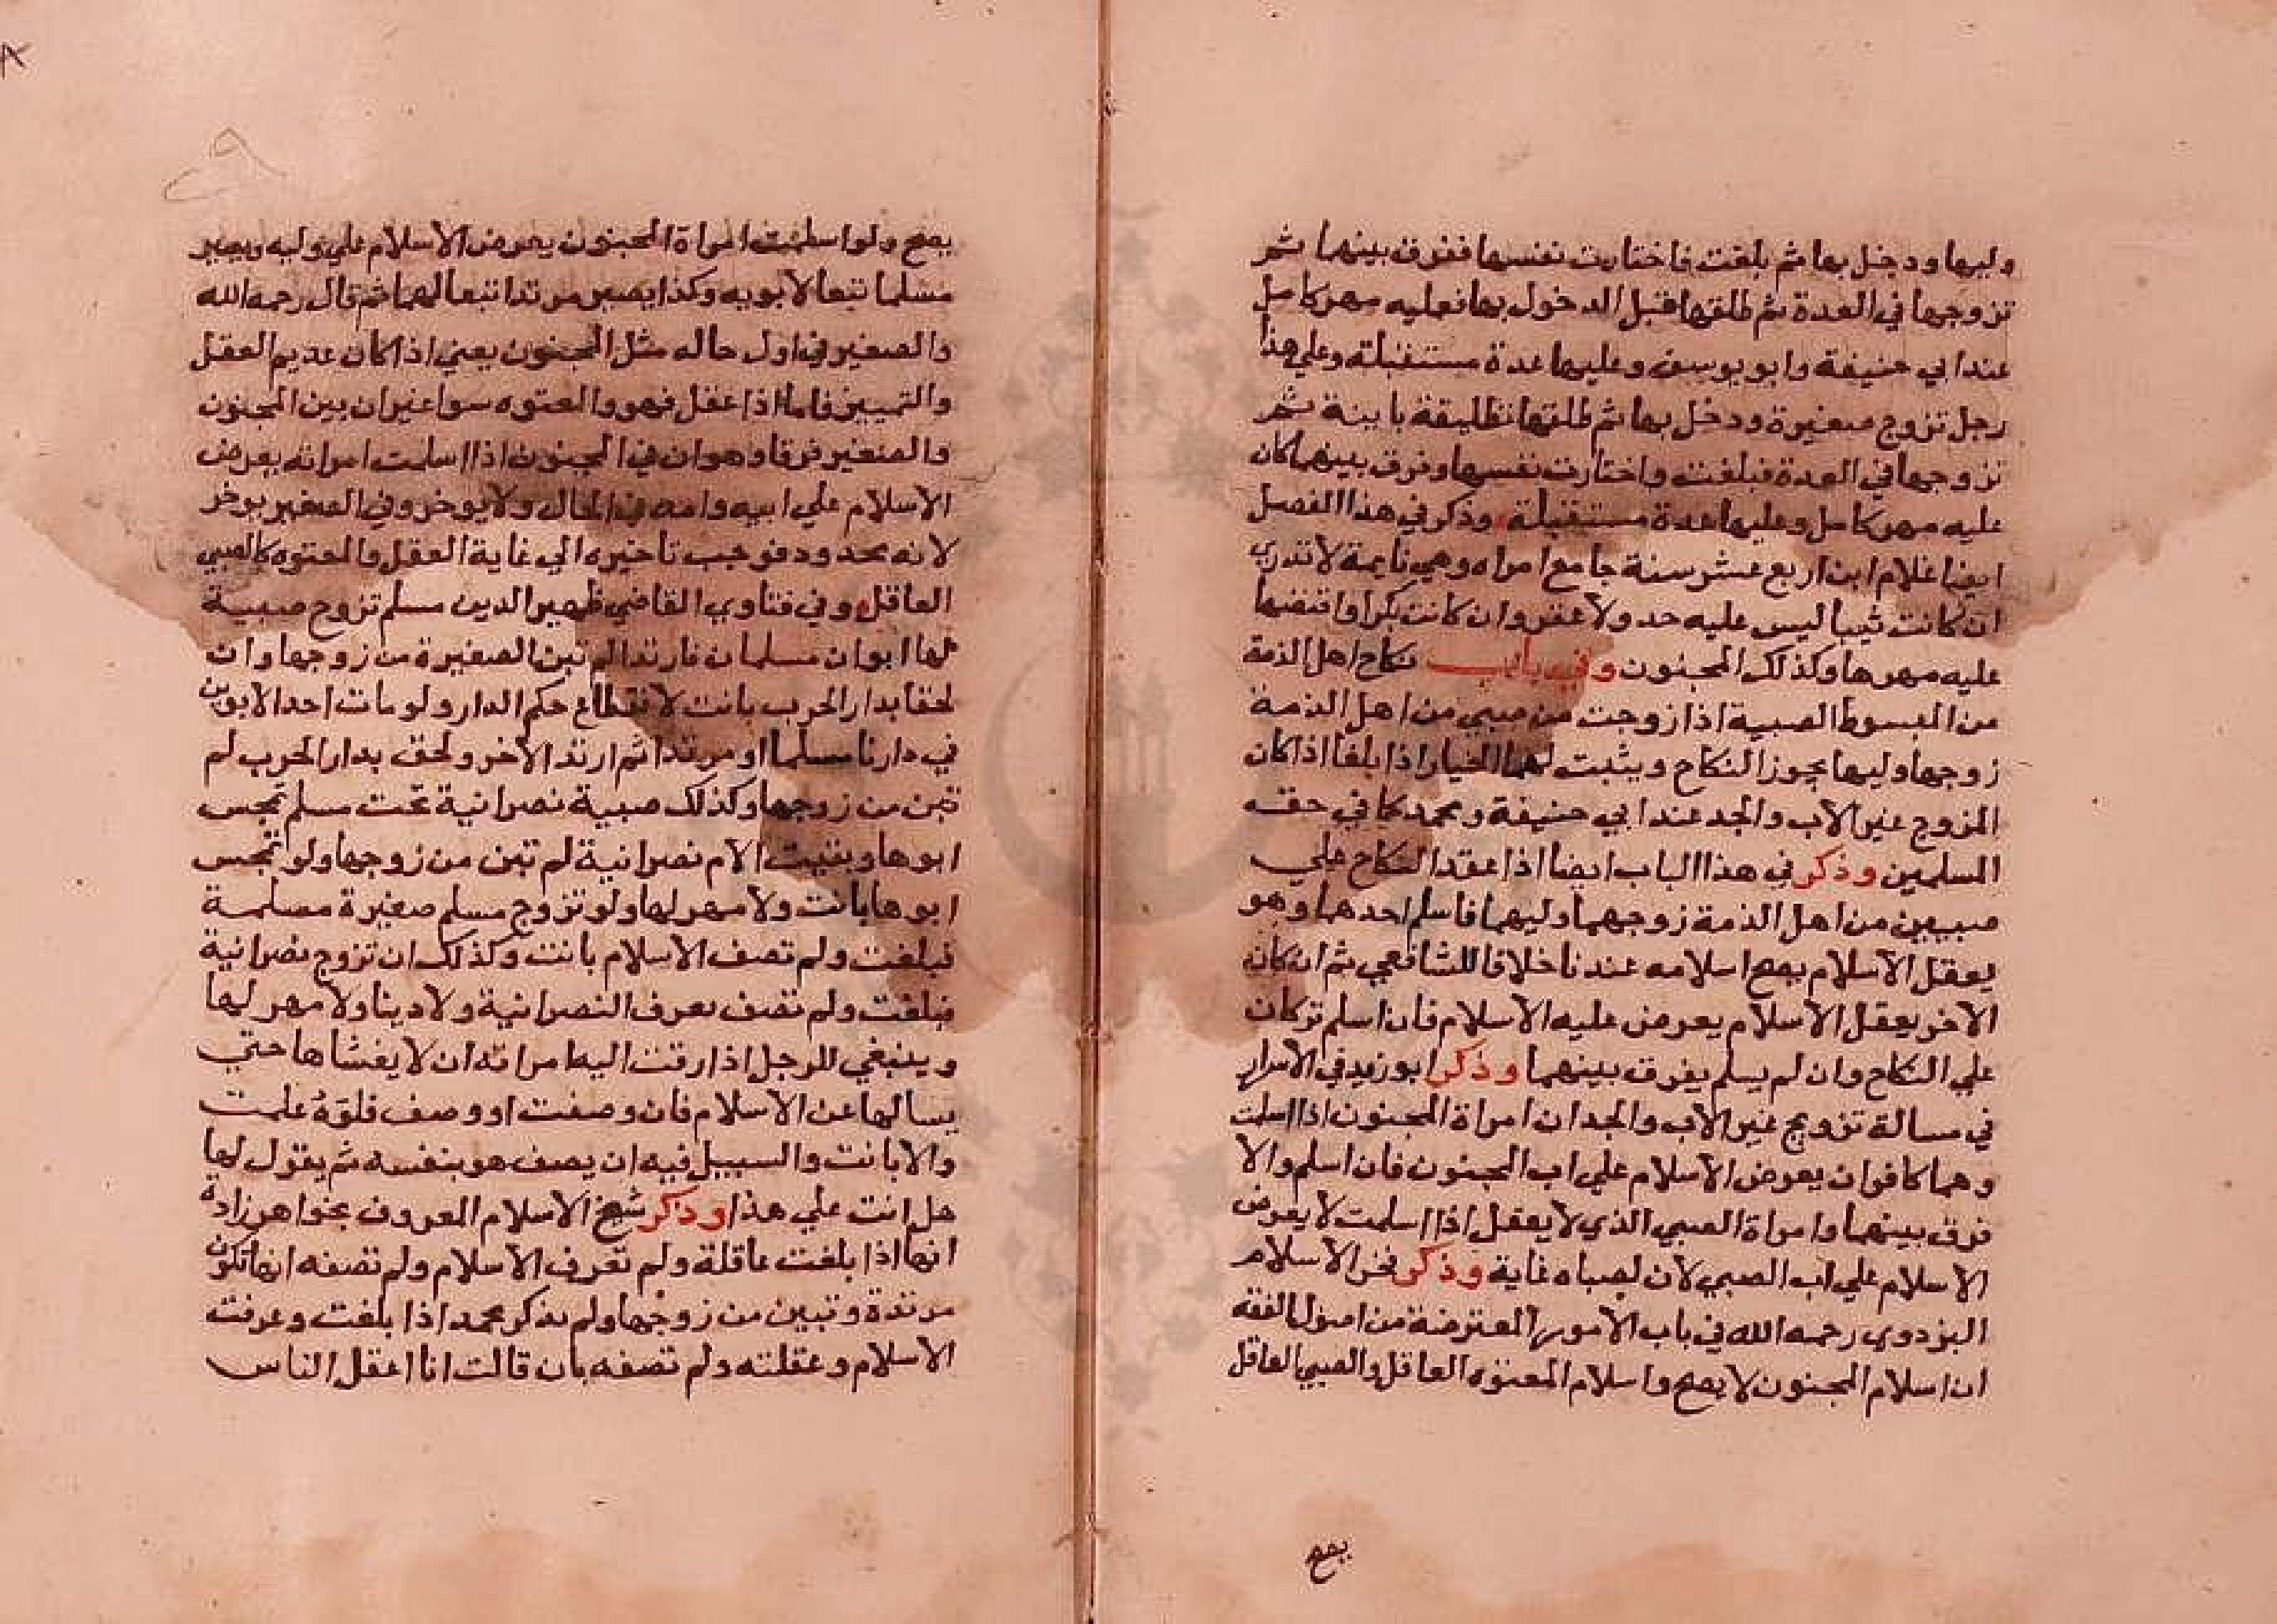 وليها ودخل بها ثم بلغت فاختارت نفسها ففرق بينهما ثم
تزوجها في العدة ثم طلقها قبل الدخول بها فعليه مهر كامل
عند ابي حنيفة وابو يوسف وعليها عدة مستقبلة وعلي هذا
رجل تزوج صغيرة ودخل بها ثم طلقها تطليقة باينة ثم
تزوجها في العدة فبلغت واختارت نفسها وفرق بينهما كان
عليه مهر كامل وعليها عدة مستقبلة وذكر في هذا الفصل
ايضا غلام ابن اربع عشر سنة جامع امراه وهي نايمة لا تدري
ان كانت ثيبا ليس عليه حد ولا عقر وان كانت بكرا وافتضها
عليه مهرها وكذلك المجنون وفي باب نكاح اهل الذمة
من المبسوط الصبية اذا زوجت من صبي من اهل الذمة
زوجها وليها يجوز النكاح ويثبت لهما الخيار اذا بلغا اذا كان
المزوج غير الاب والجد عند ابي حنيفة ومحمد كما في حقه
المسلمين وذكر في هذا الباب ايضا اذا عقد النكاح علي
صبيين من اهل الذمة زوجهما وليهما فاسلم احدهما وهو
يعقل الاسلام يصح اسلامه عندنا خلافا للشافعي ثم ان كان
الاخر يعقل الاسلام يعرض عليه الاسلام فان اسلم تركان
علي النكاح وان لم يسلم يفرق بينهما وذكر ابو زيد في الاسرار
في مسالة تزويج غير الاب والجد ان امراة المجنون اذا اسلمت
وهما كافران يعرض الاسلام علي اب المجنون فان اسلم والا
فرق بينهما وامراة الصبي الذي لا يعقل اذا اسلمت لا يعرض
الاسلام علي اب الصبي لان لصباه غاية وذكر فخر الاسلام
البزدوي رحمه الله في باب الامور المعترضة من اصول الفقه
ان اسلام المجنون لا يصح واسلام المعتوه العاقل والصبي العاقل
يصح
يصح ولو اسلمت امراة المجنون يعرض الاسلام علي وليه ويصير
مسلما تبعا لابويه وكذا يصير مرتدا تبعا لهما ثم قال رحمه الله
والصغير في اول حاله مثل المجنون يعني اذا كان عديم العقل
والتمييز فاما اذا عقل فهو والمعتوه سوا غير ان بين المجنون
والصغير فرقا وهو ان في المجنون اذا اسلمت امراته يعرض
الاسلام علي ابيه وامه في الحال ولا يوخر وفي الصغير يوخر
لانه محدود فوجب تاخيره الي غاية العقل والمعتوه كالصبي
العاقل وفي فتاوي القاضي ظهير الدين مسلم تزوج صبية
لها ابوان مسلمان فارتدا لم تبن الصغيرة من زوجها وان
لحقا بدار الحرب بانت لانقطاع حكم الدار ولو مات احد الابوين
في دارنا مسلما او مرتدا ثم ارتد الاخر ولحق بدار الحرب لم
تبن من زوجها وكذلك صبية نصرانية تحت مسلم تمجس
ابوها وبقيت الام نصرانية لم تبن من زوجها ولو تمجس
ابوها بانت ولا مهر لها ولو تزوج مسلم صغيرة مسلمة
فبلغت ولم تصف الاسلام بانت وكذلك ان تزوج نصرانية
فبلغت ولم تصف تعرف النصرانية ولا دينا ولا مهر لها
وينبغي للرجل اذا زفت اليه امراته ان لا يغشاها حتي
يسالها عن الاسلام فان وصفت او وصف علمت
والا بانت والسبيل فيه ان يصف هو بنفسه ثم يقول لها
هل انت علي هذا وذكر شيخ الاسلام المعروف بخواهر زاده
انها اذا بلغت عاقلة ولم تعرف الاسلام ولم تصفه انها تكون
مرتدة وتبين من زوجها ولم يذكر محمد اذا بلغت وعرفت
الاسلام وعقلته ولم تصفه بان قالت انا اعقل الناس